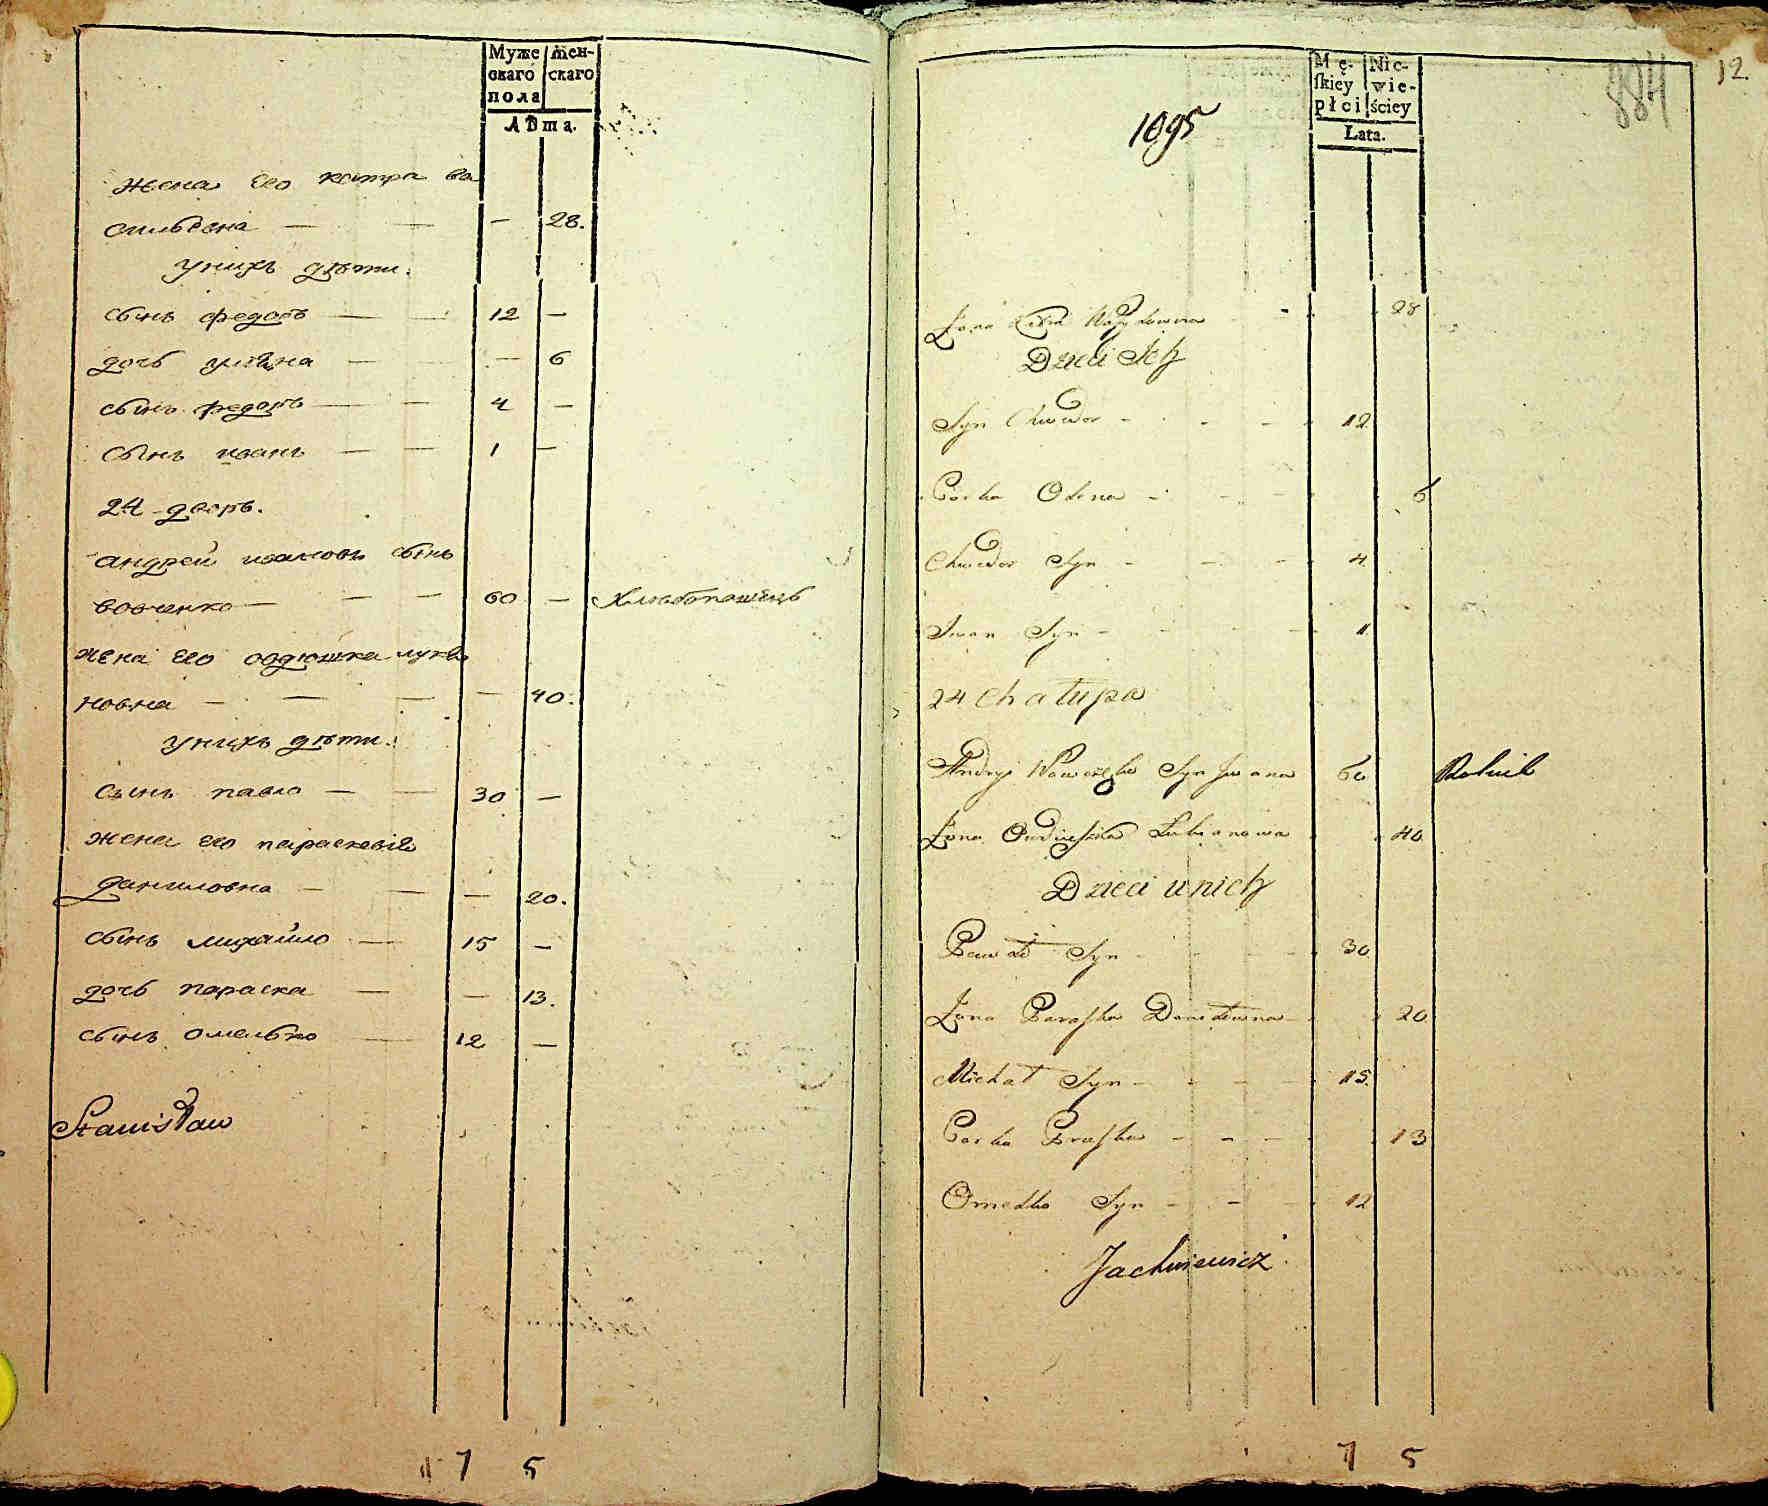 Муже
скаго
пола
жен-
скаго
Лѣта.
жена его катра ва
сильевна — — — 28.
унихъ дѣти.
сынъ федоръ — — 12 —
дочь улiяна — — 6
сынъ федоръ — — 4 —
сынъ иванъ — — 1 —
24 дворъ.
андрей ивановъ сынъ
вовченко — — — 60 — хлѣбопашецъ
жена его овдюшка лукя
новна — — — — 40.
унихъ дѣти.
сынъ павло — — 30 —
жена его параскевiя
даниловна — — — 20.
сынъ михайло — 15 —
дочь параска — — 13.
сынъ омелько — 12 —
Stanisław
7 5
884
12.
1095
Mę-
skiey
płci
Nie-
wie-
ściey
Lata.
Żona Wasylowna - - 28
Dzieci Ich
Syn Chwedor - - - 12
Corka Olena - - - 6
Chwedor Syn - - - 4
Iwan Syn - - - 1
24 Chałupa
Andryi Wowczęko Syn Iwana 60 Rolnik
Żona Owdiuszka Lukianowa 40
Dzieci u nich
Pawło Syn - - - 30
Żona Paraska Daniłowna - 20
Michał Syn - - - 15
Corka Praska - - - 13
Omelko Syn - - - 12
Jachniewicz
7 5